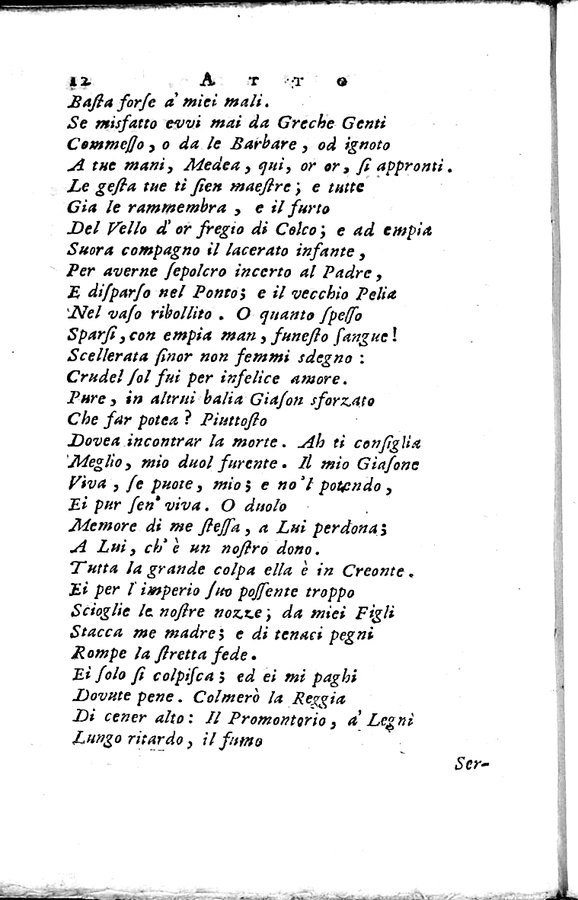 12 A T T O
Baſta forſe a' miei mali.
Se misfatto evvi mai da Greche Genti
Commeſſo, o da le Barbare, od ignoto
A tue mani, Medea, qui, or or, ſi appronti.
Le geſta tue ti ſien maeſtre; e tutte
Gia le rammembra, e il furto
Del Vello d' or fregio di Colco; e ad empia
Suora compagno il lacerato infante,
Per averne ſepolcro incerto al Padre,
E diſparſo nel Ponto; e il vecchio Pelia
Nel vaſo ribollito. O quanto ſpeſſo
Sparſi, con empia man, funeſto ſangue!
Scellerata ſinor non femmi sdegno:
Crudel ſol fui per infelice amore.
Pure, in altrui balia Giaſon sforzato
Che far potea? Piuttoſto
Dovea incontrar la morte. Ah ti conſiglia
Meglio, mio duol furente. Il mio Giaſone
Viva, ſe puote, mio; e no'l potendo,
Ei pur ſen' viva. O duolo
Memore di me ſteſſa, a Lui perdona;
A Lui, ch' è un noſtro dono.
Tutta la grande colpa ella è in Creonte.
Ei per l' imperio ſuo poſſente troppo
Scioglie le noſtre nozze; da miei Figli
Stacca me madre; e di tenaci pegni
Rompe la ſtretta fede.
Ei ſolo ſi colpiſca; ed ei mi paghi
Dovute pene. Colmerò la Reggia
Di cener alto: Il Promontorio, a' Legni
Lungo ritardo, il fumo
Ser-